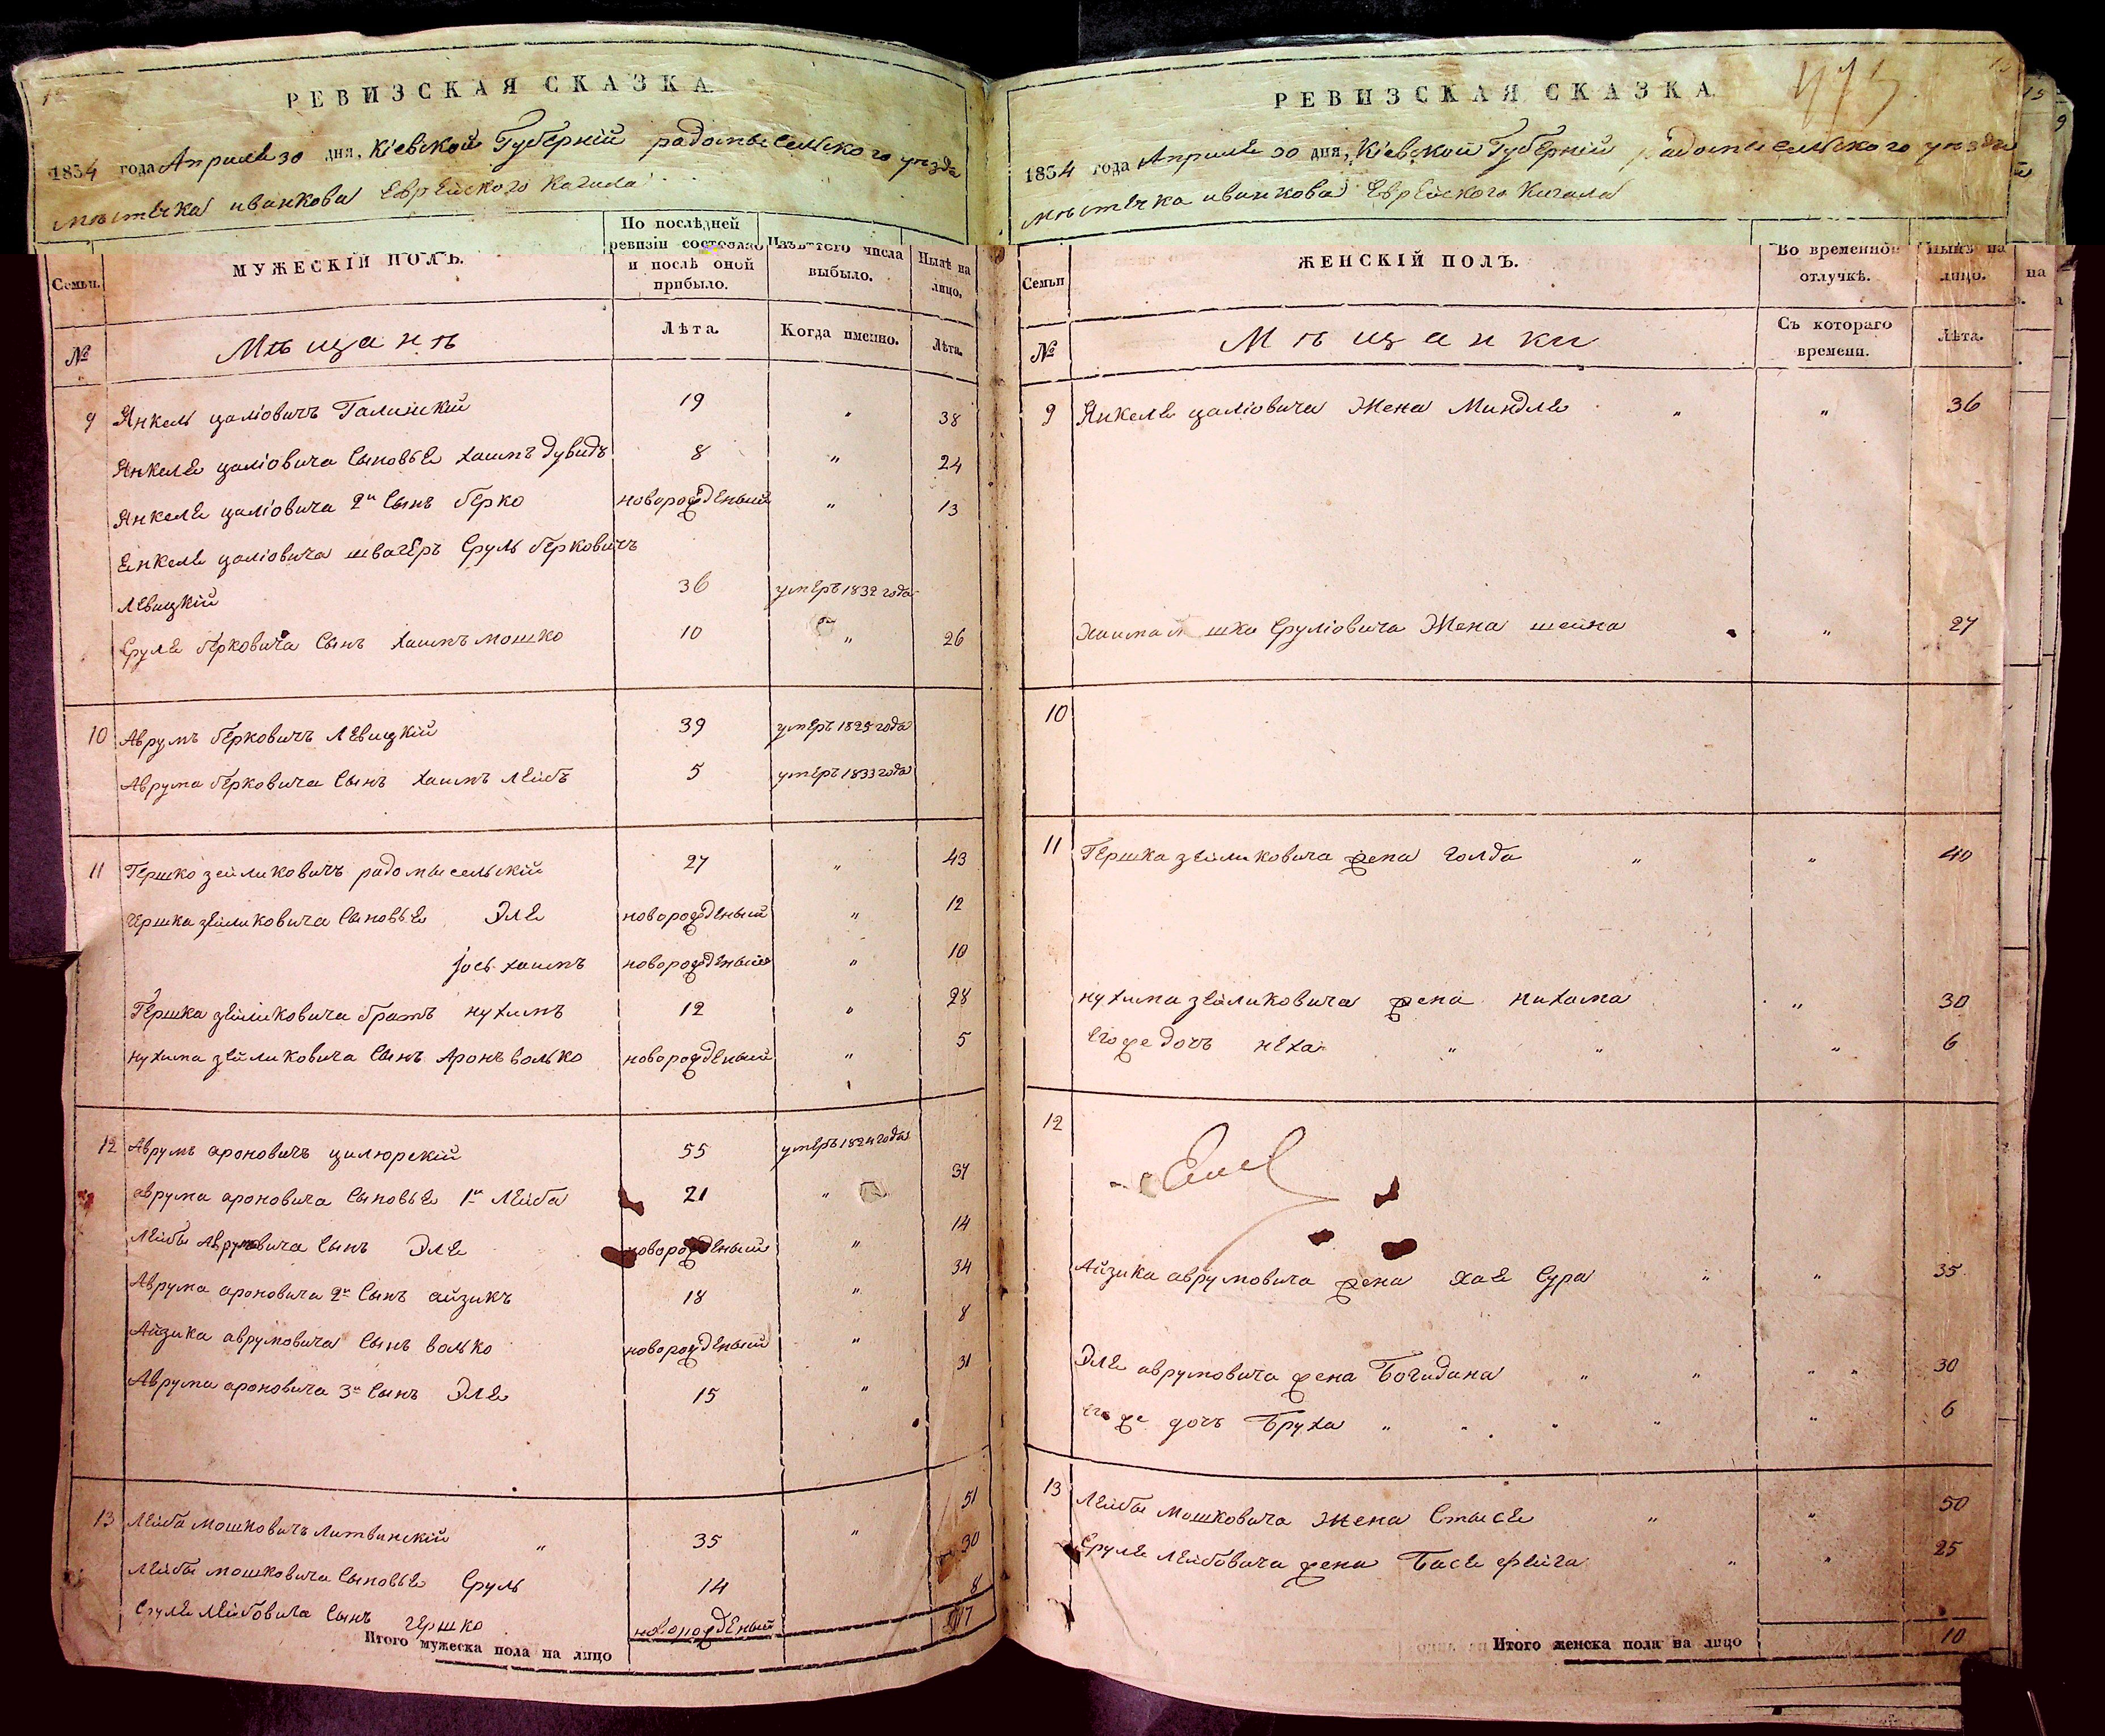 РЕВИЗСКАЯ СКАЗКА
1834 года Апреля 30 дня, Кіевской Губерній радомысельского уезда
мѣстечка иванкова Еврейского Кагала
Семьи. МУЖЕСКІЙ ПОЛЪ. По послѣдней ревизіи состояло и послѣ оной прибыло. Изъ того числа выбыло. Нынѣ на лицо.
№ Мѣщанѣ Лѣта. Когда именно. Лѣта.
9 Янкель цаліовичъ Галицкій 19 " 38
Янкеля цаліовича Сыновья хаимъ дувидъ 8 " 24
Янкеля цаліовича 2й Сынъ берко новорожденый " 13
Енкеля цаліовича швагеръ Сруль берковичъ
Левицкій 36 умеръ 1832 года
Сруля берковича Сынъ хаимъ мошко 10 " 26
10 Аврумъ берковичъ Левицкій 39 умеръ 1825 года
Аврума берковича Сынъ хаимъ Лейбъ 5 умеръ 1833 года
11 Гершко зейликовичъ радомысельскій 27 " 43
Гершка зейликовича Сыновья Эля новорожденый " 12
Іось хаимъ новорожденый " 10
Гершка зейликовича братъ нухимъ 12 " 28
нухима зейликовича Сынъ Аронъ волько новорожденый " 5
12 Аврумъ ароновичъ цилюрскій 55 умеръ 1824 года
аврума ароновича Сыновья 1й Лейба 21 " 37
Лейбы Аврумовича Сынъ Эля новорожденый " 14
Аврума ароновича 2й Сынъ айзикъ 18 " 34
Айзика аврумовича Сынъ волько новорожденый " 8
Аврума ароновича 3й Сынъ Эля 15 " 31
13 Лейба мошковичъ литвинскій " 35 " 51
Лейбы мошковича Сыновья Сруль 14 30
Сруля Лейбовича Сынъ гершко новорожденый 8
Итого мужеска пола на лицо 17
РЕВИЗСКАЯ СКАЗКА
1834 года Апреля 30 дня, Кіевской Губерній радомысельского уезда
мѣстечка иванкова Еврейского Кагала
Семьи ЖЕНСКІЙ ПОЛЪ. Во временной отлучкѣ. Нынѣ на лицо.
№ Мѣщанки Съ котораго времени. Лѣта.
9 Янкеля цаліовича Жена Миндля " " 36
Хаима мошка Сруліовича Жена шейна " 27
10
11 Гершка зейликовича жена голда " " 40
нухима зейликовича жена нихама " 30
его же дочъ неха " " " 6
12
Айзика аврумовича жена хая Сура " " 35
Эля аврумовича жена Богидана " " " " 30
его же дочъ Бруха " " " " " 6
13 Лейбы мошковича жена Стыся " " 50
Сруля Лейбовича жена Бася фейга " " 25
Итого женска пола на лицо 10